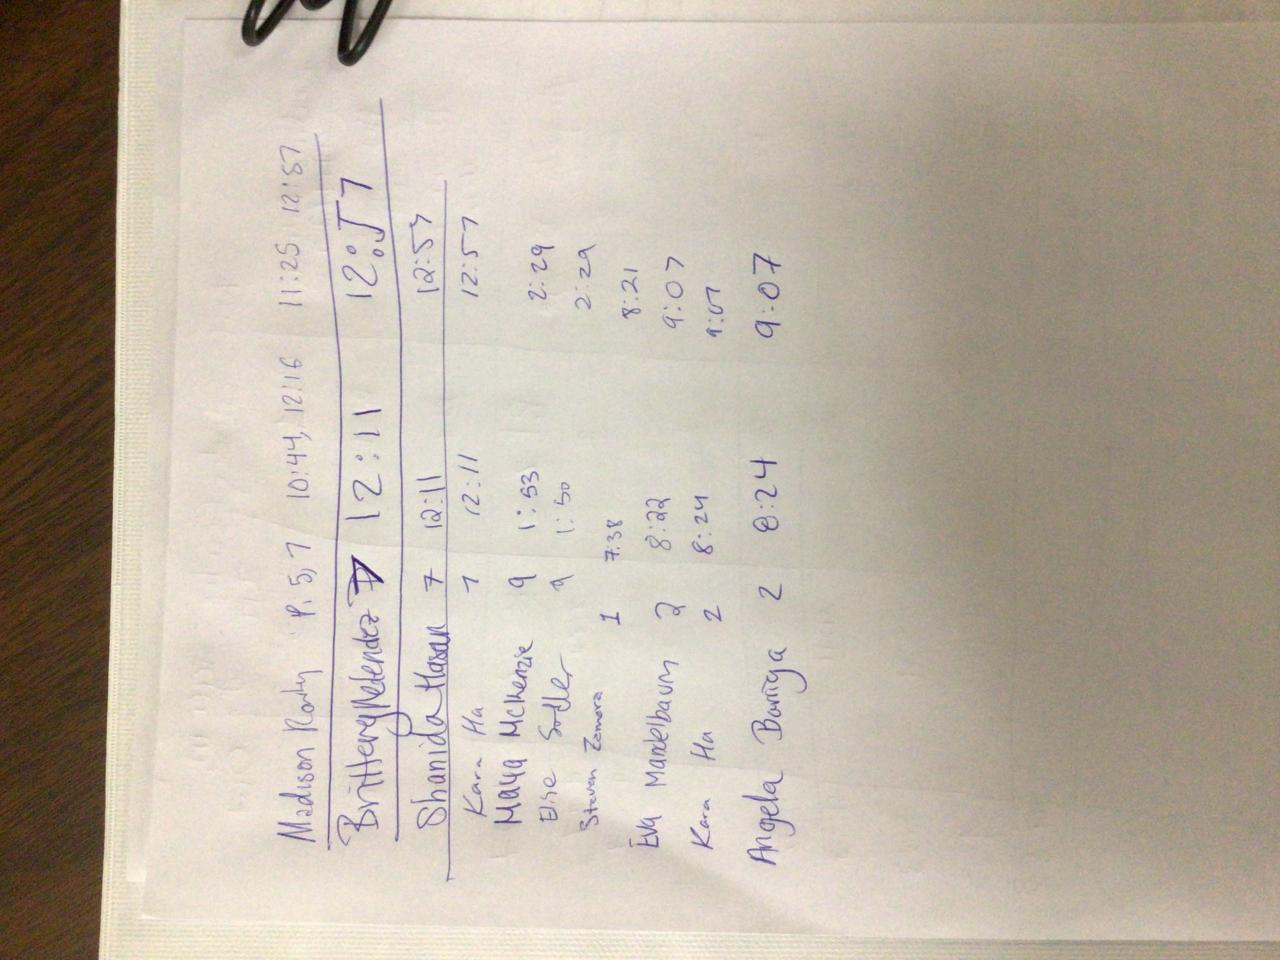 Madison P. 5, 7 10:44, 12:16 11:25 12:57
Brittany Melendez 7 12:11 12:57
Shanida Hasan 7 12:11 12:57
Kara Ha 7 12:11 12:57
Maya McKenzie 9 1:53 2:29
Elise 9 1:50 2:29
Steven Zamora 1 7:38 8:21
Eva Mandelbaum 2 8:22 9:07
Kara Ha 2 8:24 9:07
Angela Barriga 2 8:24 9:07